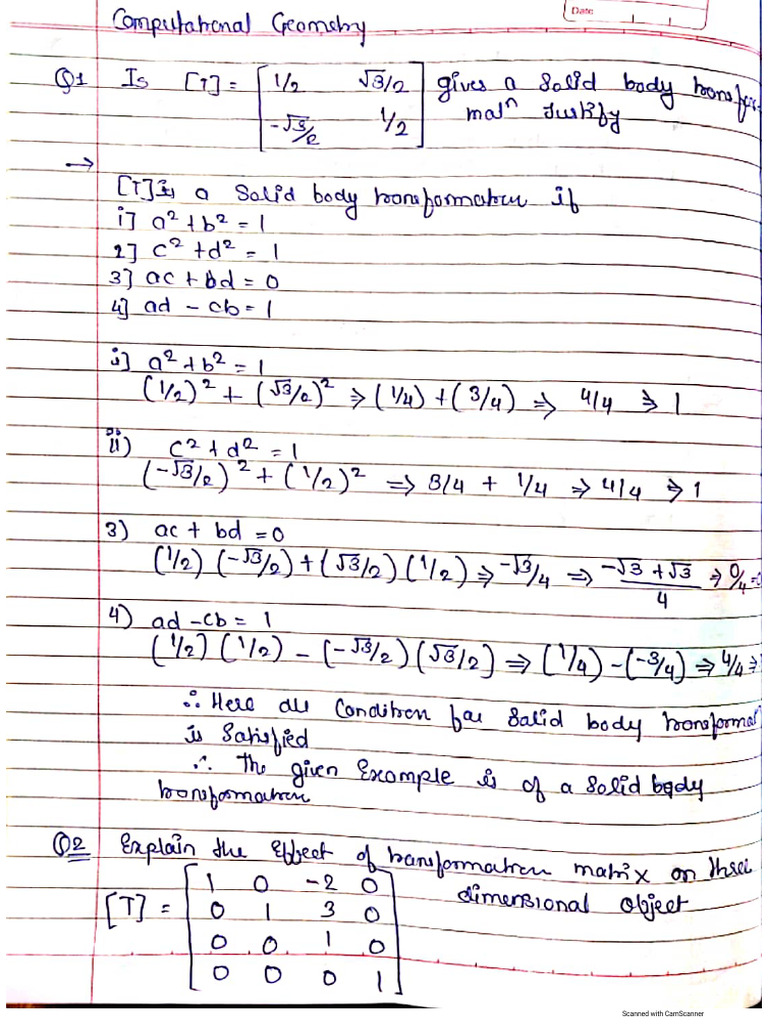 Date
Computational Geometry
Q1 Is [T] = [ 1/2 √3/2 ] gives a solid body transfor
[ -√3/2 1/2 ] matⁿ Justify
→
[T] is a Solid body transformation if
i] a² + b² = 1
2] c² + d² = 1
3] ac + bd = 0
4] ad - cb = 1
i] a² + b² = 1
(1/2)² + (√3/2)² ⇒ (1/4) + (3/4) ⇒ 4/4 ⇒ 1
ii) c² + d² = 1
(-√3/2)² + (1/2)² ⇒ 3/4 + 1/4 ⇒ 4/4 ⇒ 1
3) ac + bd = 0
(1/2) (-√3/2) + (√3/2) (1/2) ⇒ -√3/4 ⇒ (-√3 + √3)/4 ⇒ 0/4 =
4) ad - cb = 1
(1/2) (1/2) - (-√3/2) (√3/2) ⇒ (1/4) - (-3/4) ⇒ 4/4 ⇒
∴ Here all Condition for Solid body transformat
is Satisfied
∴ The given Example is of a Solid body
transformation
Q2 Explain the Effect of transformation matrix on three
dimensional object
[T] = [ 1 0 -2 0
0 1 3 0
0 0 1 0
0 0 0 1 ]
Scanned with CamScanner